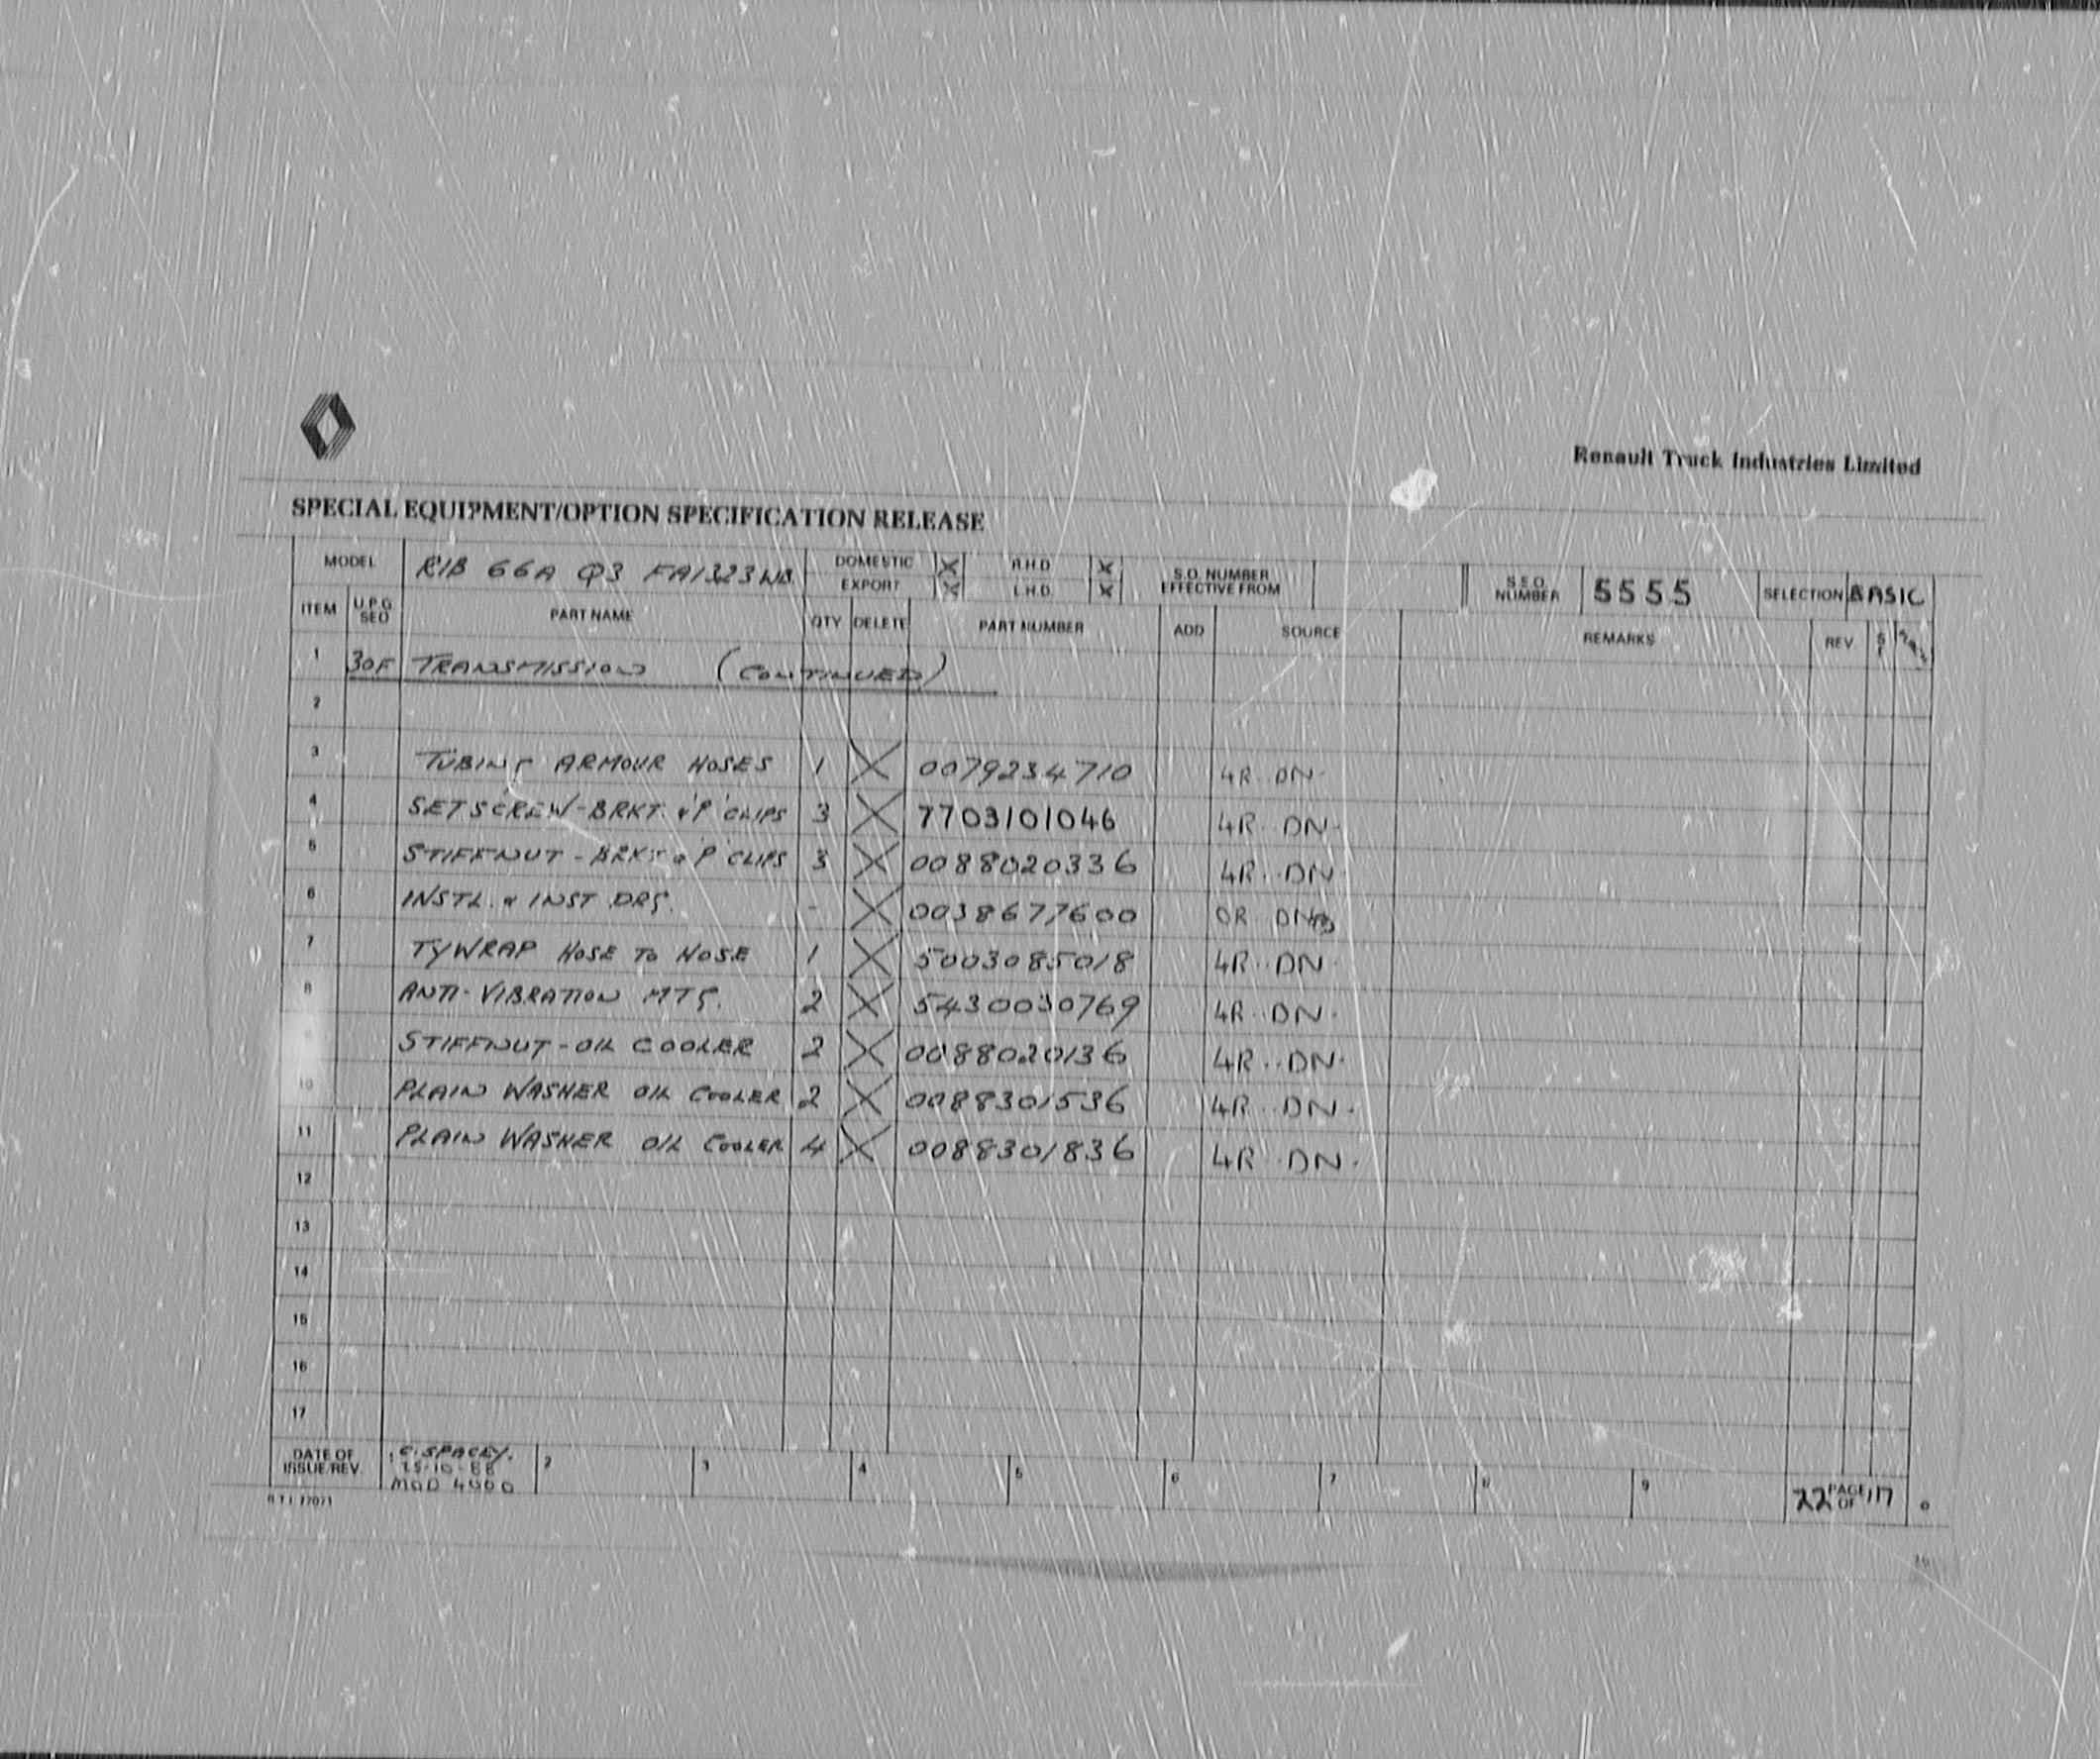 Renault Truck Industries Limited
SPECIAL EQUIPMENT/OPTION SPECIFICATION RELEASE
MODEL RIB 66A Q3 FA1323WB DOMESTIC X R.H.D X S.O. NUMBER EFFECTIVE FROM S.E.O. NUMBER 5555 SELECTION BASIC
EXPORT X L.H.D. X
ITEM U.P.G SEQ PART NAME QTY DELETE PART NUMBER ADD SOURCE REMARKS REV
1 30F TRANSMISSION (CONTINUED)
2
3 TUBING ARMOUR HOSES 1 X 0079234710 4R DN
4 SETSCREW-BRKT. & 'P' CLIPS 3 X 7703101046 4R DN
5 STIFFNUT - BRKT & 'P' CLIPS 3 X 0088020336 4R DN
6 INSTL. & INST DRG. - X 0038677600 OR
7 TYWRAP HOSE TO HOSE 1 X 5003085018 4R DN
8 ANTI-VIBRATION MTG. 2 X 5430030769 4R DN
STIFFNUT-OIL COOLER 2 X 0088020136 4R DN
10 PLAIN WASHER OIL COOLER 2 X 0088301536 4R DN
11 PLAIN WASHER OIL COOLER 4 X 0088301836 4R DN
12
13
14
15
16
17
DATE OF ISSUE/REV. C. SPACEY. 2 3 4 5 6 7 8 9 22 PAGE OF 117
MOD 4500
R.T.I. 77071